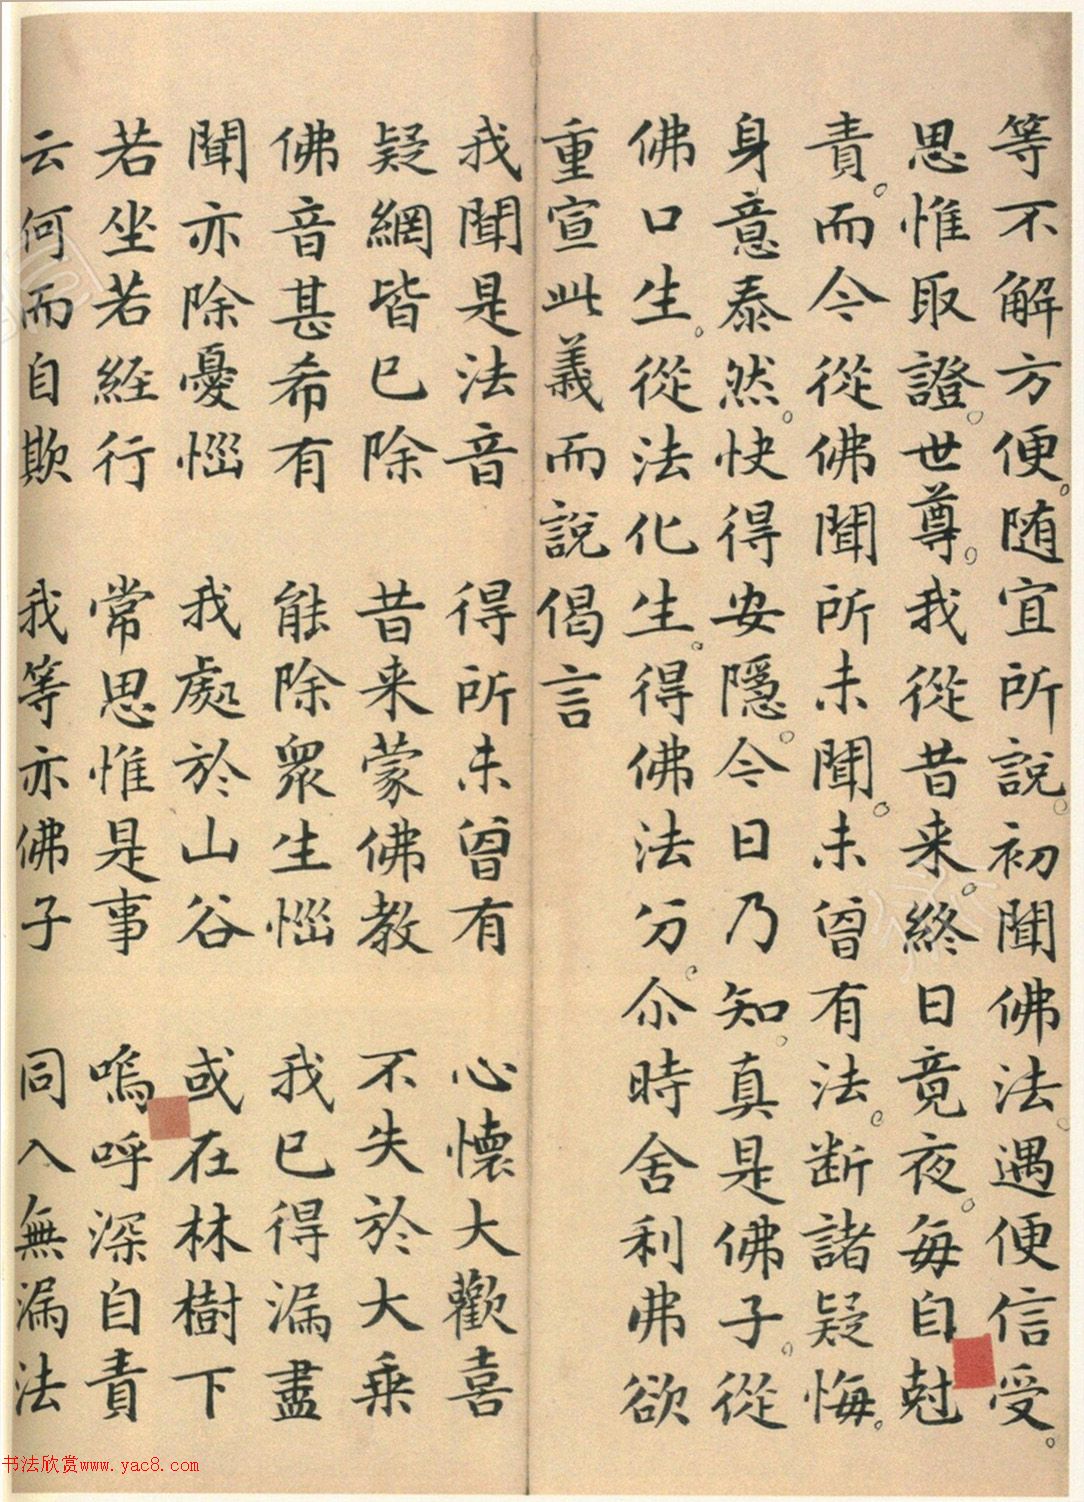 等不解方便。随宜所說。初聞佛法。遇便信受。
思惟取證。世尊。我從昔来。終日竟夜。每自尅
責。而今從佛聞所未聞。未曾有法。断諸疑悔。
身意泰然。快得安隱。今日乃知。真是佛子。從
佛口生。從法化生。得佛法分。尒時舍利弗欲
重宣此義而說偈言
我聞是法音 得所未曾有 心懷大歡喜
疑網皆已除 昔来蒙佛教 不失於大乗
佛音甚希有 能除眾生惱 我已得漏盡
聞亦除憂惱 我處於山谷 或在林樹下
若坐若経行 常思惟是事 嗚呼深自責
云何而自欺 我等亦佛子 同入無漏法
书法欣赏www.yac8.com